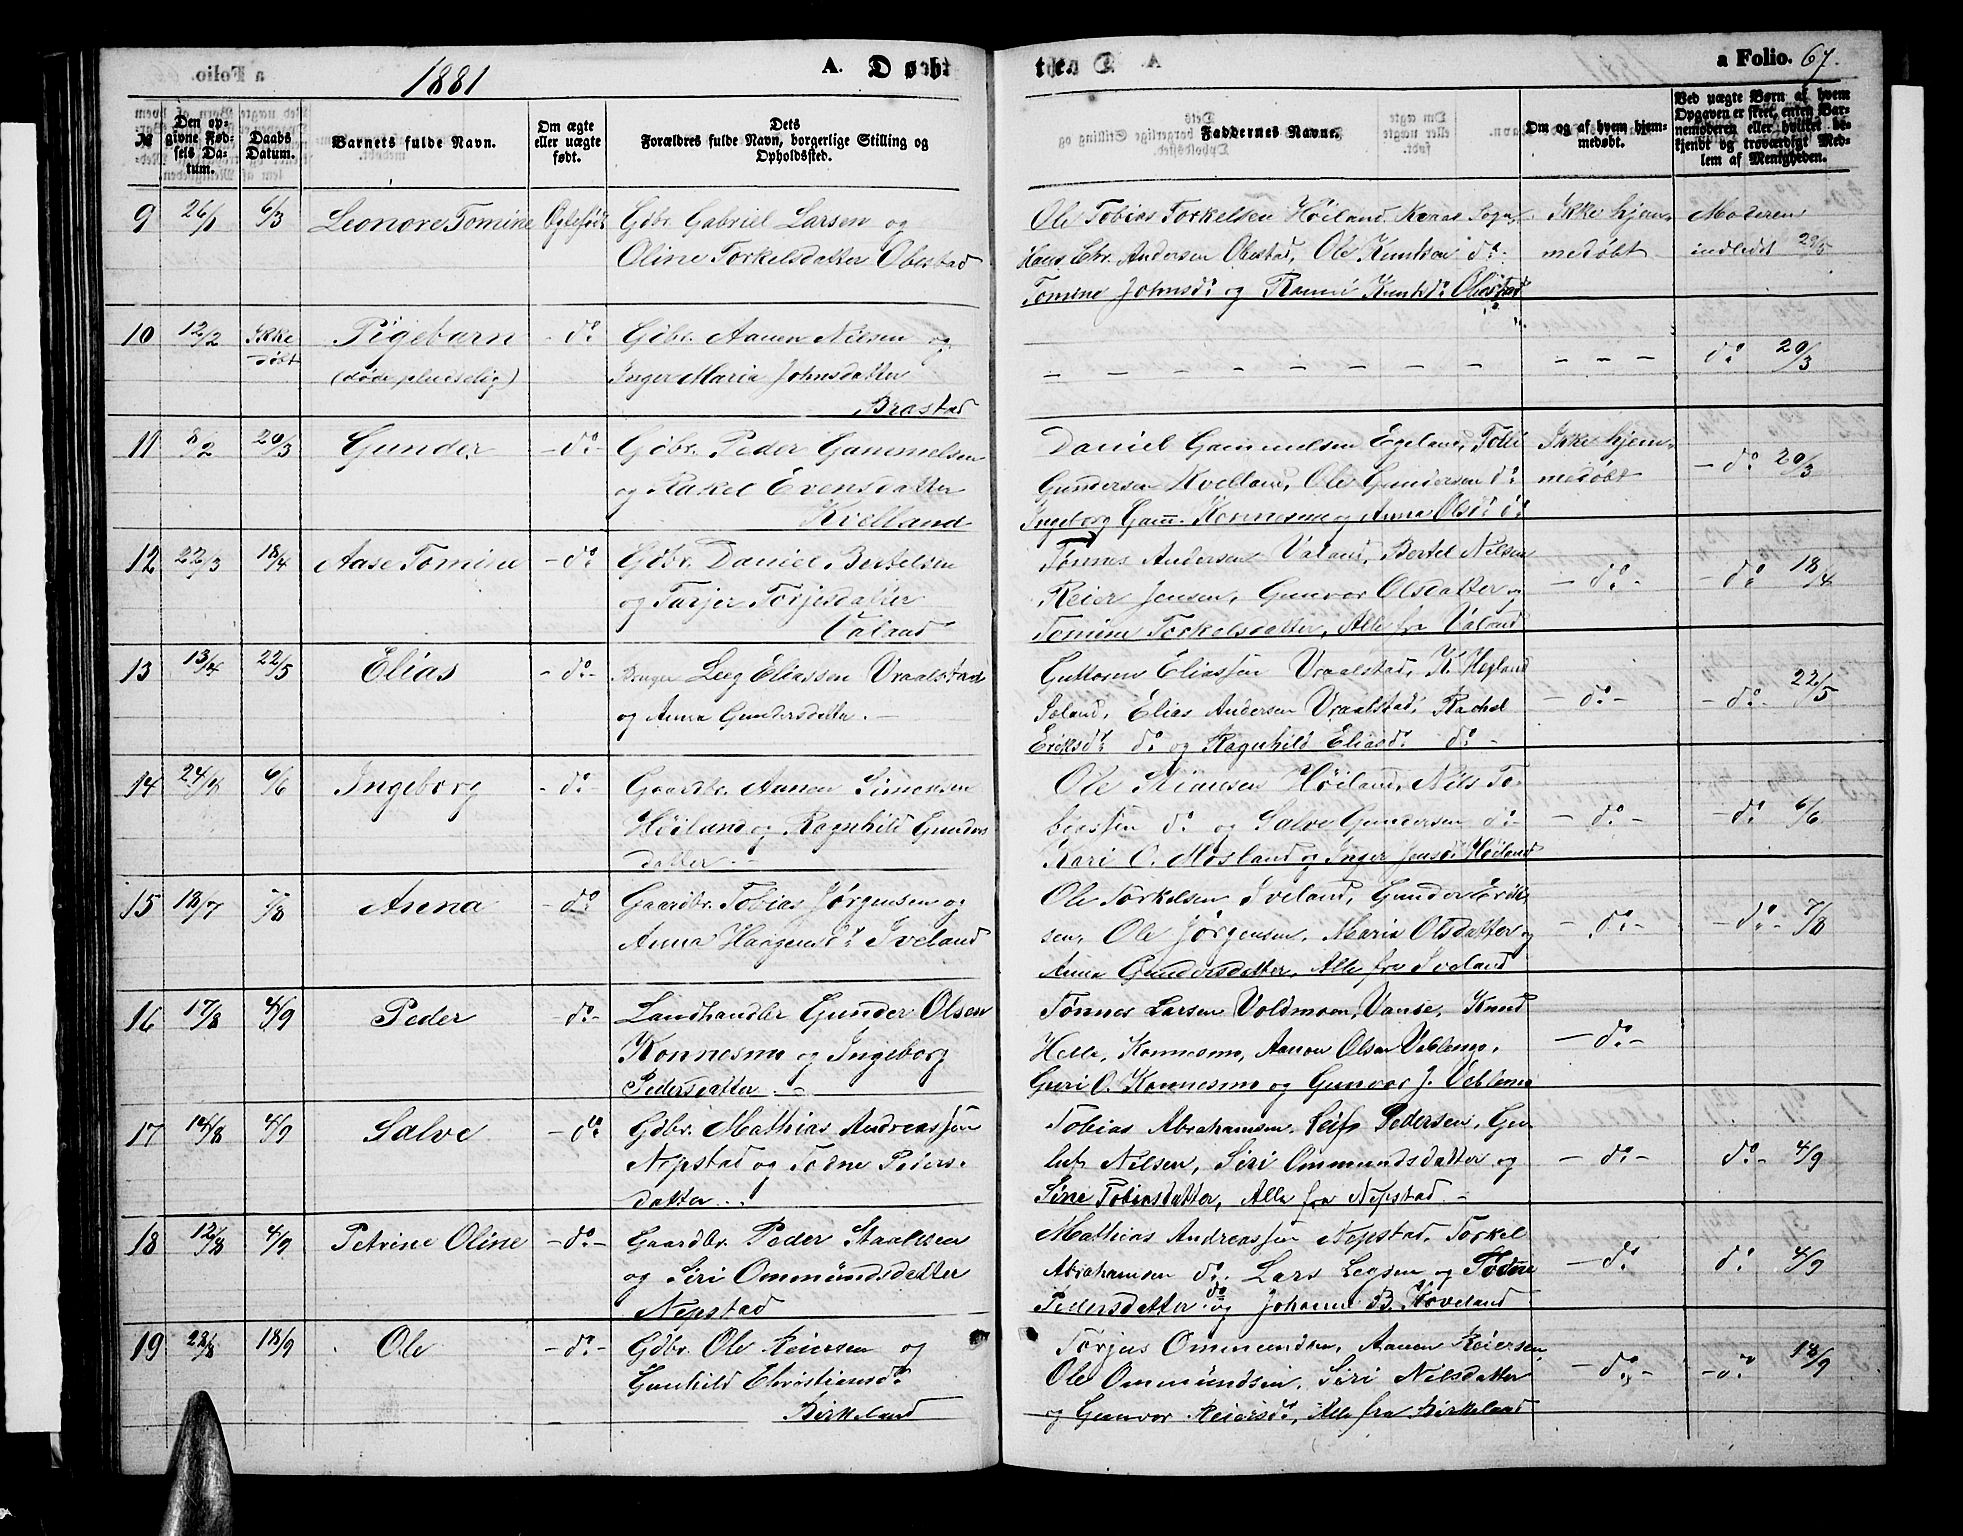 1881
A. Døbte.
a Folio. 67.
№
Den opgivne Fødsels Datum.
Daabs Datum.
Barnets fulde Navn.
Om ægte eller uægte født.
Dets Forældres fulde Navn, borgerlige Stilling og Opholdssted.
Faddernes Navne.
Om og af hvem hjemmedøbt.
Ved uægte Børn af hvem Opgaven er skeet, enten Barnemoderen eller hvilket bekjendt og troværdigt Medlem af Menigheden.
9 26/1 6/3 Leonore Tomine Ægtefødt Gdbr. Gabriel Larsen og
Oline Torkelsdatter Obestad
Ole Tobias Torkelsen Høiland Sogn, Ikke hjem- Moderen
Hans Chr. Andersen Obestad, Ole Knutsen do. medøbt indledt 29/5
Tomine Johnsd. og Knutsd. Obestad
10 12/2 Ikke døbt Pigebarn - do Gdbr. Aanen Nilsen og
(døde pludselig) Inger Maria Johnsdatter
Brastad
- - - - - - - - - - - - do 20/3
11 8/2 20/3 Gunder - do - Gdbr. Peder Gammelsen
og Rakel Evensdatter
Kvelland
Daniel Gammelsen Egeland, Ikke hjem-
Gundersen Kvelland, Ole Gundersen do medøbt - do 20/3
Ingeborg Gam. Konnesmo og Anna Olsd. do
12 22/3 18/4 Aase Tomine - do Gdbr. Daniel Bertelsen
og Tarjer Torjesdatter
Valand
Tønnes Andersen Valand, Bertel Nilsen
Reier Jensen, Gunvor Olsdatter og - do - - do 18/4
Tomine Torkelsdatter, Alle fra Valand
13 13/4 22/5 Elias - do - Bruger Leeg Eliassen Vraalstad
og Anna Gundersdatter. -
Guttorm Eliassen Vraalstad, K. Hegland
Soland, Elias Andersen Vraalstad, Rachel - do - - do - 22/5
Eriksd. do og Ragnhild Eliasd. do -
14 24/4 6/6 Ingeborg - do - Gaardbr. Aanen Simonsen
Høiland og Ragnhild Gunders
datter. -
Ole Simonsen Høiland, Nils To-
biassen do og Salve Gundersen do - - do - - do 6/6
Kari O. Mosland og Inger Jensd. Høiland
15 18/7 7/8 Anna - do Gaardbr. Tobias Jørgensen og
Anna Haagensd. Iveland
Ole Torkelsen Iveland, Gunder
sen, Ole Jørgensen, Maria Olsdatter og - do - - do - 7/8
Anna Gundersdatter, Alle fra Iveland
16 17/8 4/9 Peder - do - Landhandler Gunder Olsen
Konnesmo og Ingeborg
Pedersdatter. -
Tønnes Larsen Voldmoen, Vanse, Knud
Helle, Konnesmo, Aanon Olsen Veblemo, - do -
Guri O. Konnesmo og Gunvor J. Veblemo
17 14/8 4/9 Salve - do Gdbr. Mathias Andreassen
Nepstad og Todne Peders-
datter. .
Tobias Abrahamsen, Leif Pedersen, Ge-
Nilsen, Siri Ommundsdatter og - do - do - 4/9
Sine Tobiasdatter, Alle fra Nepstad. -
18 12/8 4/9 Petrine Oline - do - Gaardbr. Peder Staalesen
og Siri Ommundsdatter
Nepstad
Mathias Andreassen Nepstad, Torkel
Abrahamsen do, Lars Legsen og Todne - do do 4/9
Pedersdatter do og Johanne B. Hoveland
19 22/8 18/9 Ole - do - Gdbr. Ole Reiersen og
Gunhild Christiansd.
Birkeland
Torjus Ommundsen, Aanen Reiersen,
Ole Ommundsen, Siri Nilsdatter - do - - do 18/9
og Gunvor Reiersd., Alle fra Birkeland